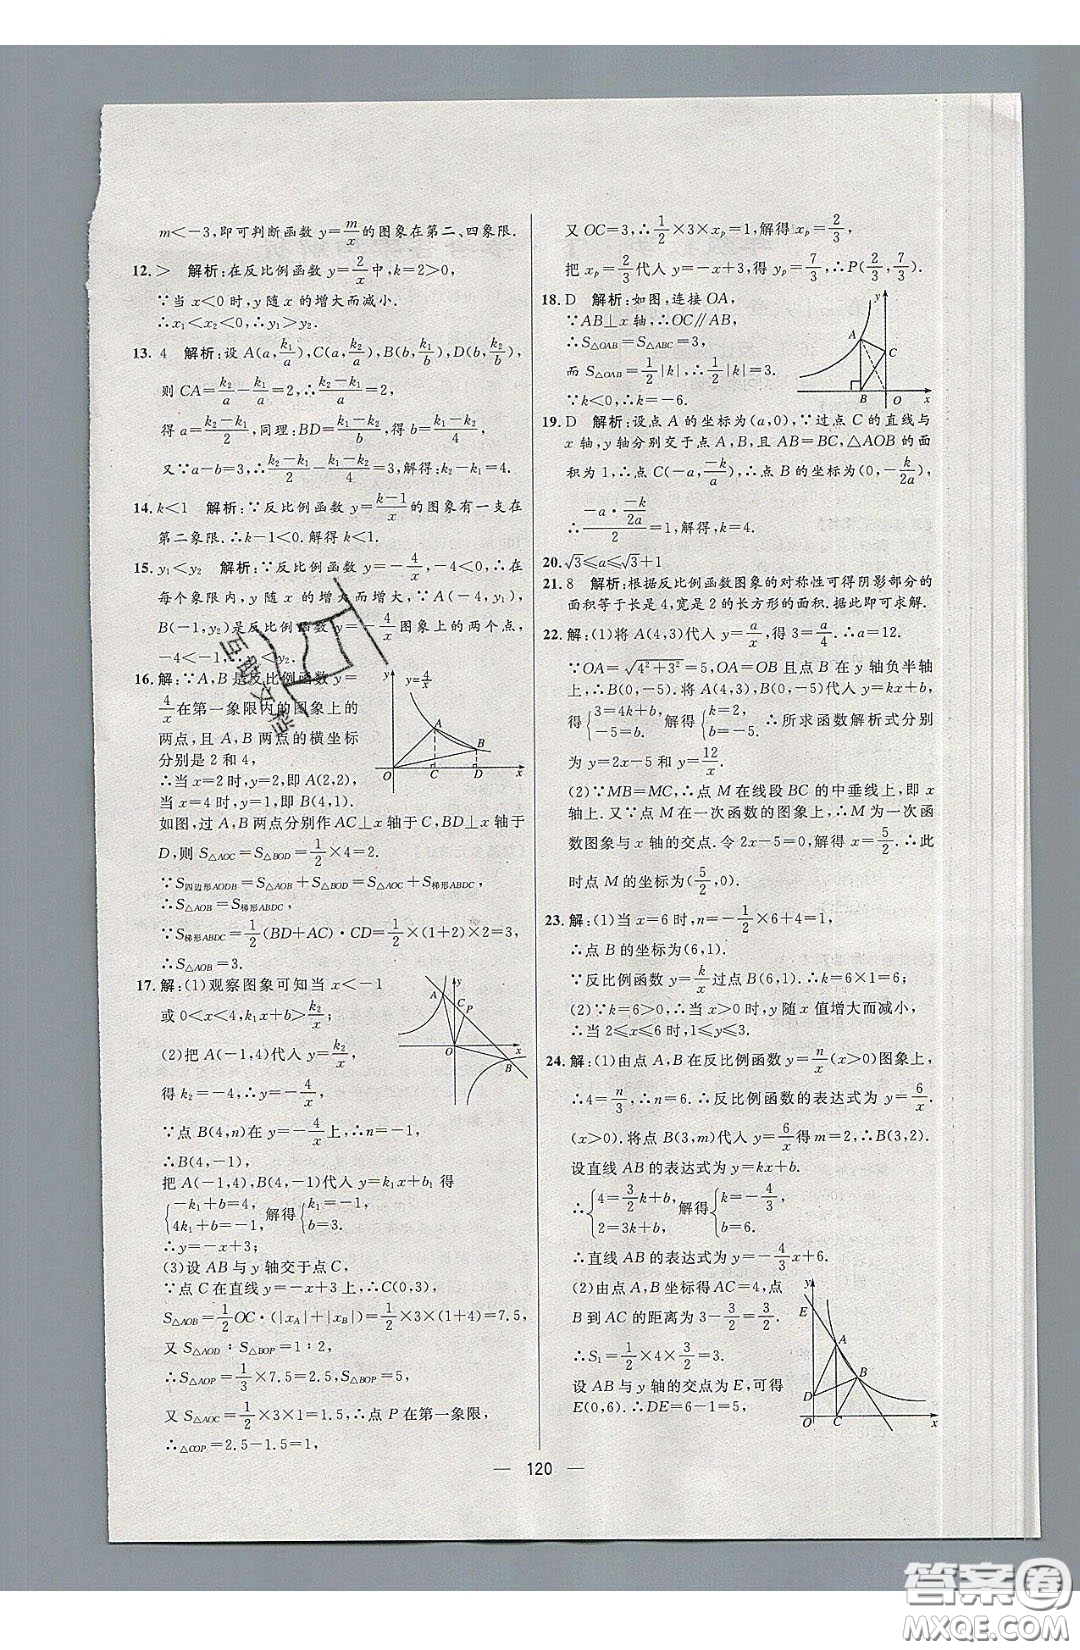 m<-3,即可判断函数 y=m/x 的图象在第二、四象限.
12.> 解析:在反比例函数 y=2/x 中,k=2>0,
∵当 x<0 时,y 随 x 的增大而减小.
∴x₁<x₂<0,∴y₁>y₂.
13. 4 解析:设 A(a,k₁/a),C(a,k₂/a),B(b,k₁/b),D(b,k₂/b),
则 CA=k₂/a-k₁/a=2,∴(k₂-k₁)/a=2,
得 a=(k₂-k₁)/2,同理:BD=(k₁-k₂)/b,得 b=(k₁-k₂)/4,
又∵a-b=3,∴(k₂-k₁)/2-(k₁-k₂)/4=3,解得:k₂-k₁=4.
14. k<1 解析:∵反比例函数 y=(k-1)/x 的图象有一支在
第二象限.∴k-1<0.解得 k<1.
15. y₁<y₂ 解析:∵反比例函数 y=-4/x,-4<0,∴在
每个象限内,y 随 x 的增大而增大,∵A(-4,y₁),
B(-1,y₂)是反比例函数 y=-4/x 图象上的两个点,
-4<-1,∴y₁<y₂.
16. 解:∵A,B 是反比例函数 y=
4/x 在第一象限内的图象上的
两点,且 A,B 两点的横坐标
分别是 2 和 4,
∴当 x=2 时,y=2,即 A(2,2),
当 x=4 时,y=1,即 B(4,1).
y
y=4/x
A
B
O C D x
如图,过 A,B 两点分别作 AC⊥x 轴于 C,BD⊥x 轴于
D,则 S△AOC=S△BOD=1/2×4=2.
∵S四边形AODB=S△AOB+S△BOD=S△AOC+S梯形ABDC,
∴S△AOB=S梯形ABDC,
∵S梯形ABDC=1/2(BD+AC)·CD=1/2×(1+2)×2=3,
∴S△AOB=3.
17. 解:(1)观察图象可知当 x<-1
或 0<x<4,k₁x+b>k₂/x;
(2)把 A(-1,4)代入 y=k₂/x,
得 k₂=-4,∴y=-4/x,
y
A
C
P
O x
B
∵点 B(4,n)在 y=-4/x 上,∴n=-1,
∴B(4,-1),
把 A(-1,4),B(4,-1)代入 y=k₁x+b₁ 得
{-k₁+b=4, 4k₁+b=-1. 解得{k₁=-1, b=3.
∴y=-x+3;
(3)设 AB 与 y 轴交于点 C,
∵点 C 在直线 y=-x+3 上,∴C(0,3),
S△AOB=1/2OC·(|xA|+|xB|)=1/2×3×(1+4)=7.5,
又 S△AOD∶S△BOP=1∶2,
∴S△AOP=1/3×7.5=2.5,S△BOP=5,
又 S△AOC=1/2×3×1=1.5,∴点 P 在第一象限,
∴△COP=2.5-1.5=1,
又 OC=3,∴1/2×3×xₚ=1,解得 xₚ=2/3,
把 xₚ=2/3代入 y=-x+3,得 yₚ=7/3,∴P(2/3,7/3).
18. D 解析:如图,连接 OA,
∵AB⊥x 轴,∴OC∥AB,
∴S△OAB=S△ABC=3,
而 S△OAB=1/2|k|,∴1/2|k|=3.
∵k<0,∴k=-6.
y
A
C
B O x
19. D 解析:设点 A 的坐标为(a,0),∵过点 C 的直线与
x 轴,y 轴分别交于点 A,B,且 AB=BC,△AOB 的面
积为 1,∴点 C(-a,-k/a),∴点 B 的坐标为(0,-k/2a),
∴(-a·(-k/2a))/2=1,解得,k=4.
20. √3≤a≤√3+1
21. 8 解析:根据反比例函数图象的对称性可得阴影部分的
面积等于长是 4,宽是 2 的长方形的面积.据此即可求解.
22. 解:(1)将 A(4,3)代入 y=a/x,得 3=a/4.∴a=12.
∵OA=√(4²+3²)=5,OA=OB 且点 B 在 y 轴负半轴
上,∴B(0,-5).将 A(4,3),B(0,-5)代入 y=kx+b,
得{3=4k+b, -5=b. 解得{k=2, b=-5. ∴所求函数解析式分别
为 y=2x-5 和 y=12/x.
(2)∵MB=MC,∴点 M 在线段 BC 的中垂线上,即 x
轴上.又∵点 M 在一次函数的图象上,∴M 为一次函
数图象与 x 轴的交点.令 2x-5=0,解得 x=5/2.∴此
时点 M 的坐标为(5/2,0).
23. 解:(1)当 x=6 时,n=-1/2×6+4=1,
∴点 B 的坐标为(6,1).
∵反比例函数 y=k/x 过点 B(6,1),∴k=6×1=6;
(2)∵k=6>0,∴当 x>0 时,y 随 x 值增大而减小,
∴当 2≤x≤6 时,1≤y≤3.
24. 解:(1)由点 A,B 在反比例函数 y=n/x(x>0)图象上,
∴4=n/(3/2),∴n=6.∴反比例函数的表达式为 y=6/x
(x>0).将点 B(3,m)代入 y=6/x 得 m=2,∴B(3,2).
设直线 AB 的表达式为 y=kx+b.
∴{4=3/2k+b, 2=3k+b, 解得{k=-4/3, b=6.
∴直线 AB 的表达式为 y=-4/3x+6.
(2)由点 A,B 坐标得 AC=4,点
B 到 AC 的距离为 3-3/2=3/2,
∴S₁=1/2×4×3/2=3.
设 AB 与 y 轴的交点为 E,可得
E(0,6).∴DE=6-1=5,
y
E
A
B
D
O C x
— 120 —
互助文档
答案圈
MXQE.COM